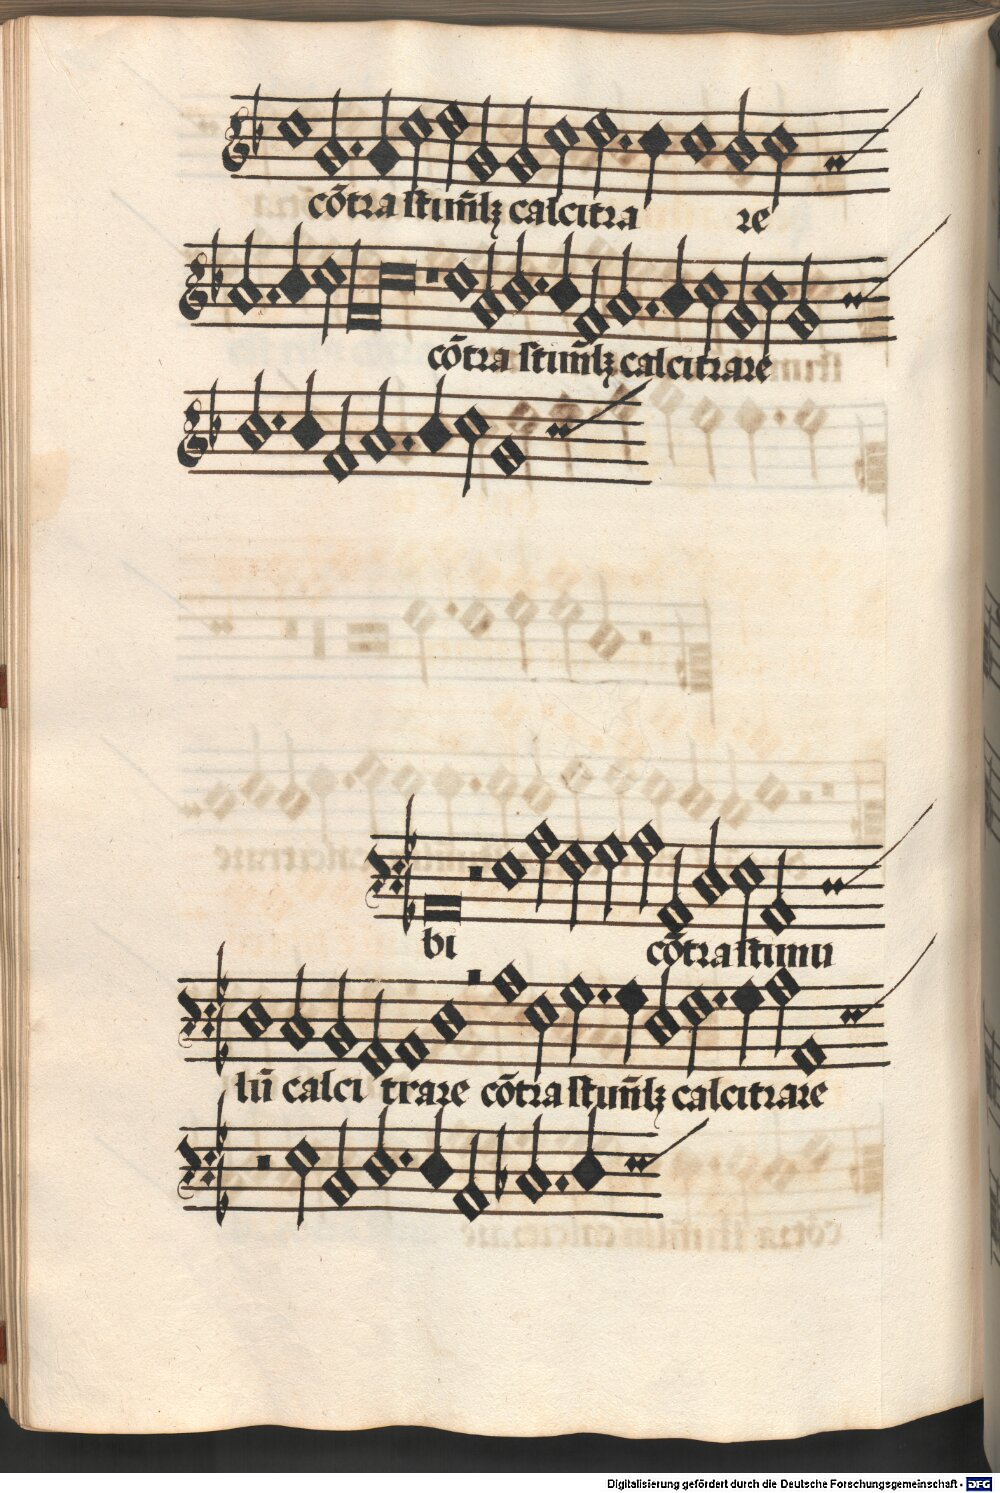 cōtra stim̄lꝫ calcitra re
cōtra stim̄lꝫ calcitrare
bi cōtra stimu
lū calci trare cōtra stim̄lꝫ calcitrare
Digitalisierung gefördert durch die Deutsche Forschungsgemeinschaft - DFG